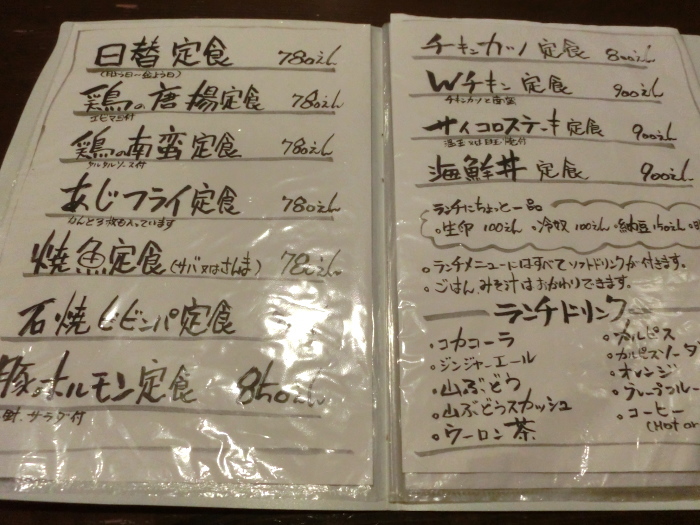 日替定食 780えん
(月よう日~金よう日)
鶏の唐揚定食 780えん
エビマヨ付
鶏の南蛮定食 780えん
タルタルソース付
あじフライ定食 780えん
なんと3枚も入っています
焼魚定食(サバ又はさんま) 780えん
石焼ビビンバ定食
豚ホルモン定食 850えん
サラダ付
チキンカツ定食 800えん
Wチキン定食 900えん
チキンカツと南蛮
サイコロステーキ定食 900えん
海鮮丼定食 900えん
ランチにちょっと一品
。生卵 100えん 。冷奴 100えん 。納豆 150えん
。ランチメニューにはすべてソフトドリンクが付きます。
。ごはん、みそ汁はおかわりできます。
ランチドリンク
。コカコーラ
。ジンジャーエール
。山ぶどう
。山ぶどうスカッシュ
。ウーロン茶
。カルピス
。カルピスソーダ
。オレンジ
。グレープフル
。コーヒー
(Hot or